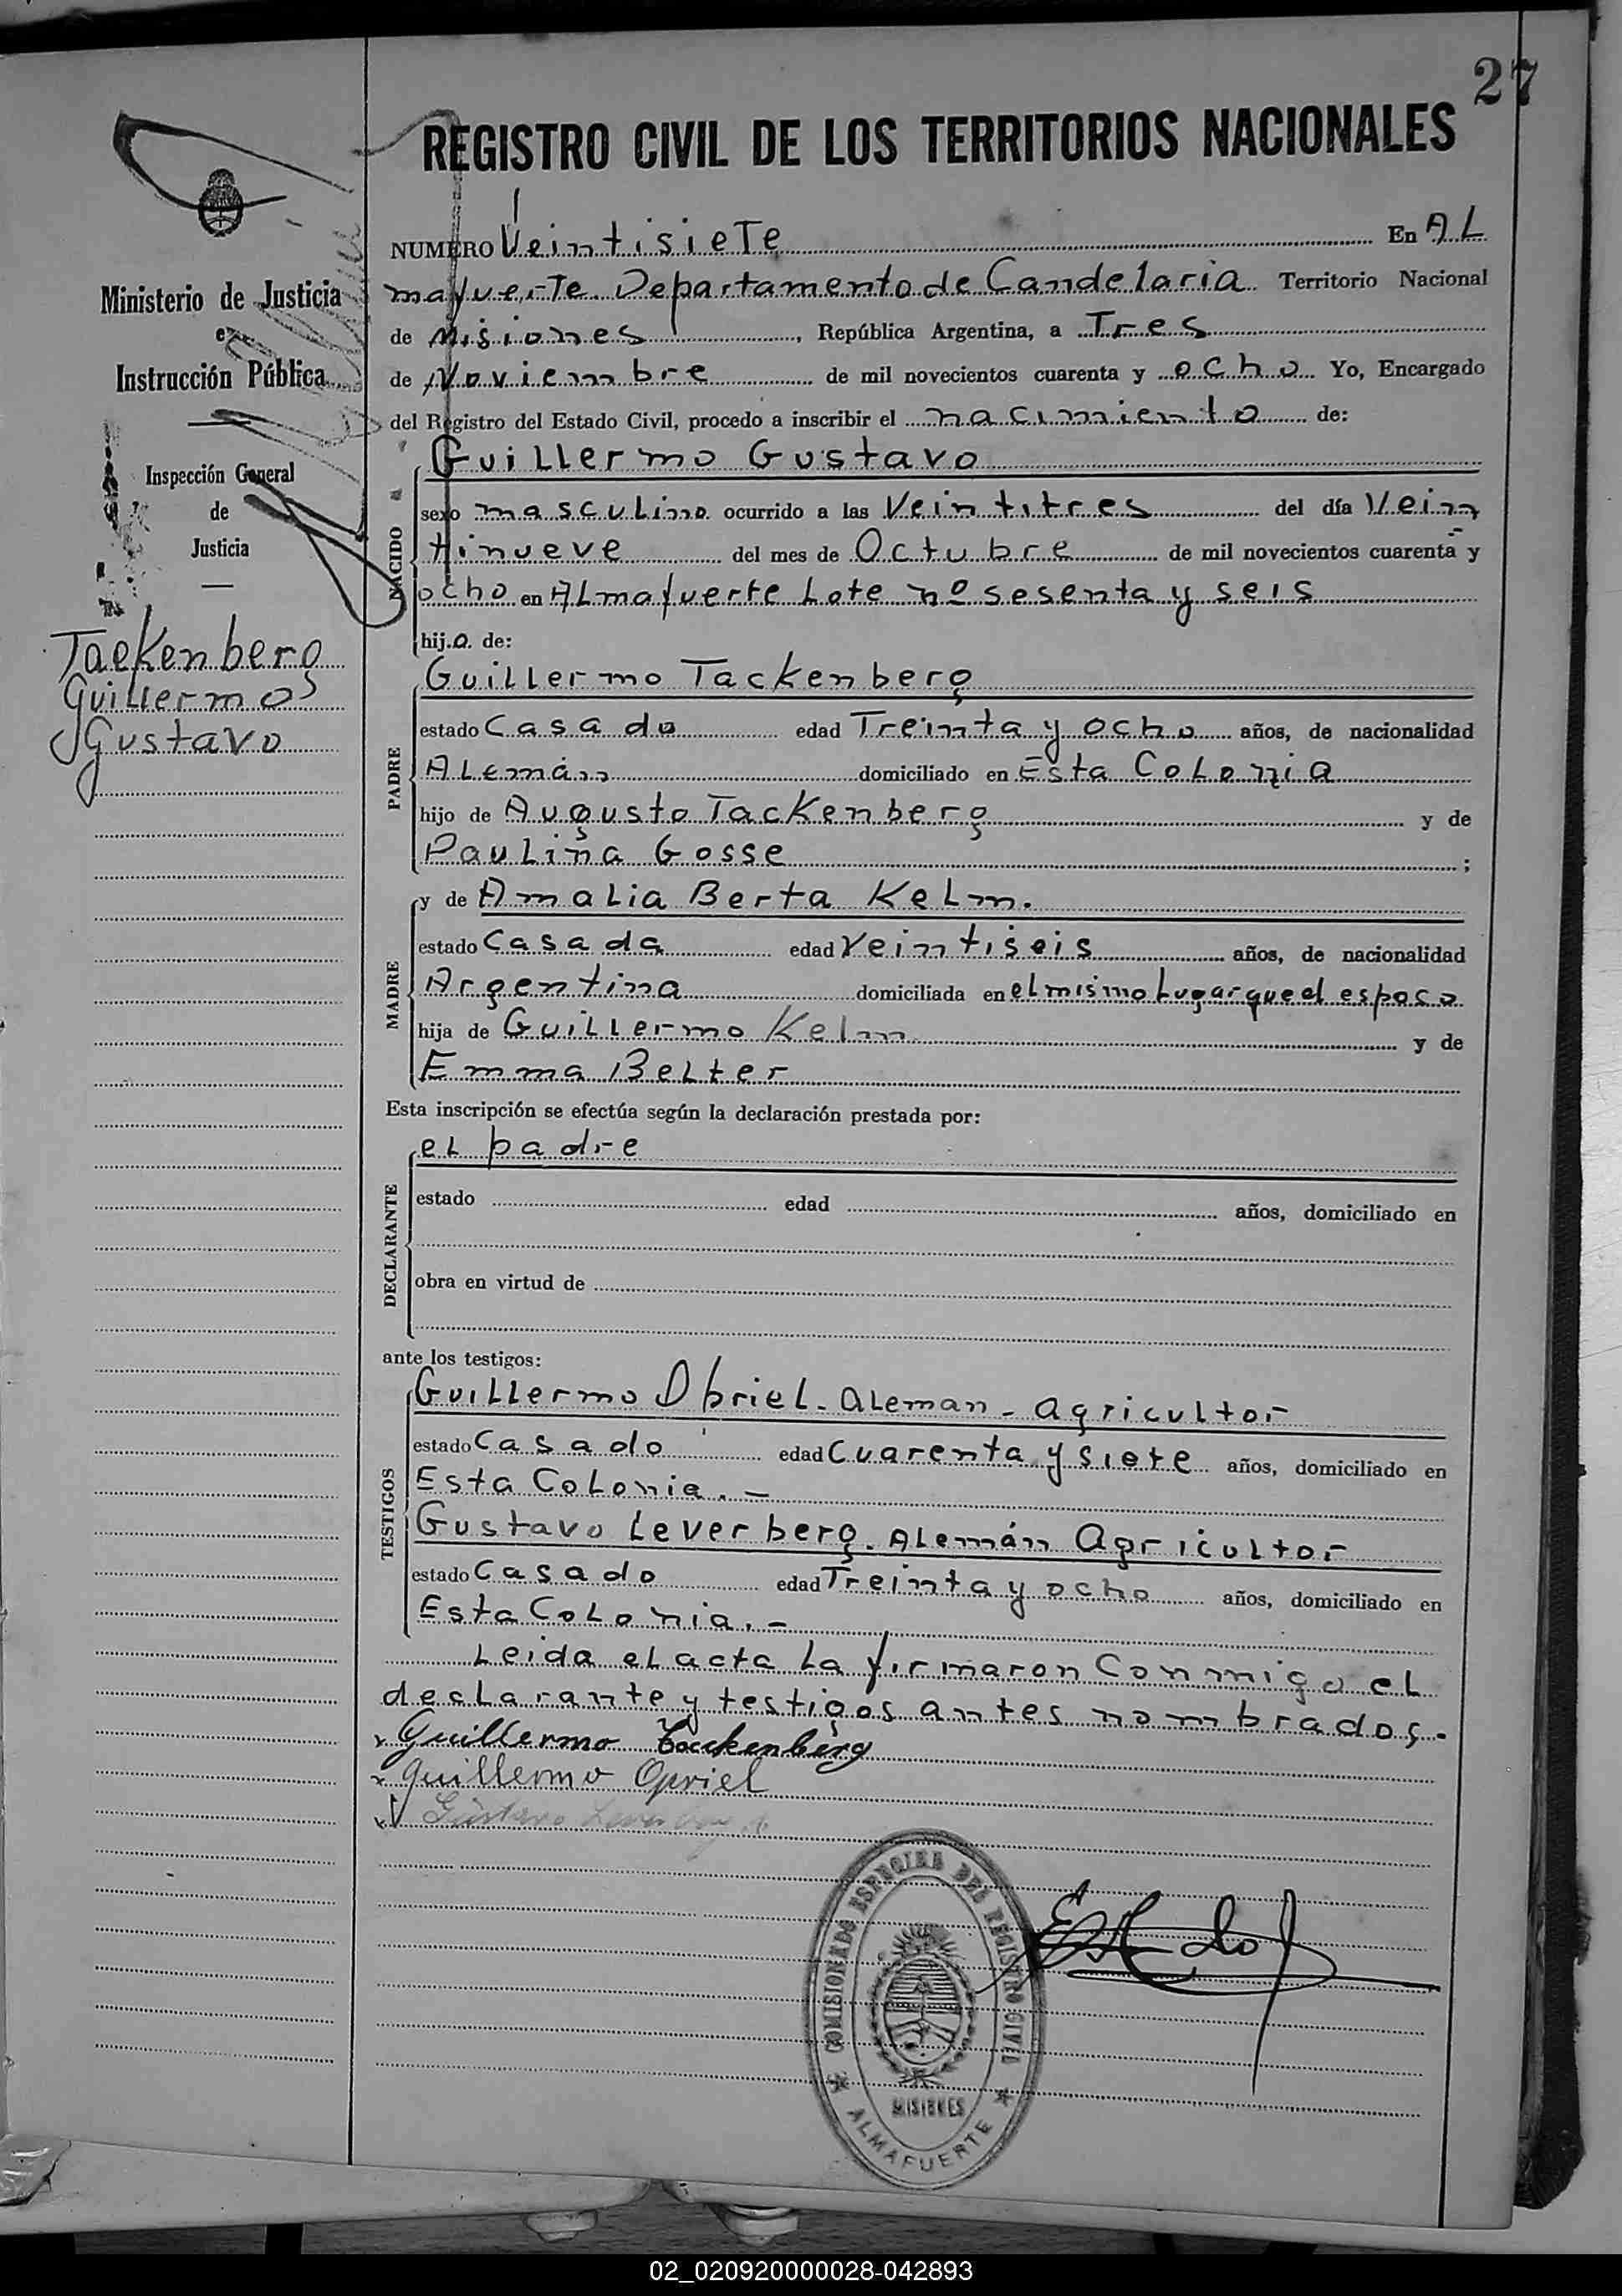 27
REGISTRO CIVIL DE LOS TERRITORIOS NACIONALES
Ministerio de Justicia
e
Instrucción Pública
Inspección General
de
Justicia
Tackenberg
Guillermo
Gustavo
NUMERO Veintisiete En AL
mafuerte Departamento de Candelaria Territorio Nacional
de Misiones, República Argentina, a Tres
de Noviembre de mil novecientos cuarenta y ocho Yo, Encargado
del Registro del Estado Civil, procedo a inscribir el nacimiento de:
NACIDO
Guillermo Gustavo
sexo masculino ocurrido a las Veintitres del día Vein
tinueve del mes de Octubre de mil novecientos cuarenta y
ocho en ALmafuerte Lote nº sesenta y seis
hijo de:
PADRE
Guillermo Tackenberg
estado Casado edad Treinta y ocho años, de nacionalidad
ALemán domiciliado en Esta Colonia
hijo de Augusto Tackenberg y de
Paulina Gosse ;
MADRE
y de Amalia Berta Kelm.
estado Casada edad Veintiseis años, de nacionalidad
Argentina domiciliada en el mismo Lugar que el esposo
hija de Guillermo Kelm y de
Emma Belter
Esta inscripción se efectúa según la declaración prestada por:
DECLARANTE
el padre
estado edad años, domiciliado en
obra en virtud de
ante los testigos:
TESTIGOS
Guillermo Obriel - Aleman - agricultor
estado Casado edad Cuarenta y siete años, domiciliado en
Esta Colonia. -
Gustavo Leverberg. ALemán Agricultor
estado Casado edad Treinta y ocho años, domiciliado en
Esta Colonia. -
Leida el acta la firmaron Conmigo el
declarante y testigos antes nombrados.
Guillermo Tackenberg
Guillermo Opriel
Gustavo
COMISIONADO ESPECIAL DEL REGISTRO CIVIL
MISIONES
ALMAFUERTE
02_020920000028-042893